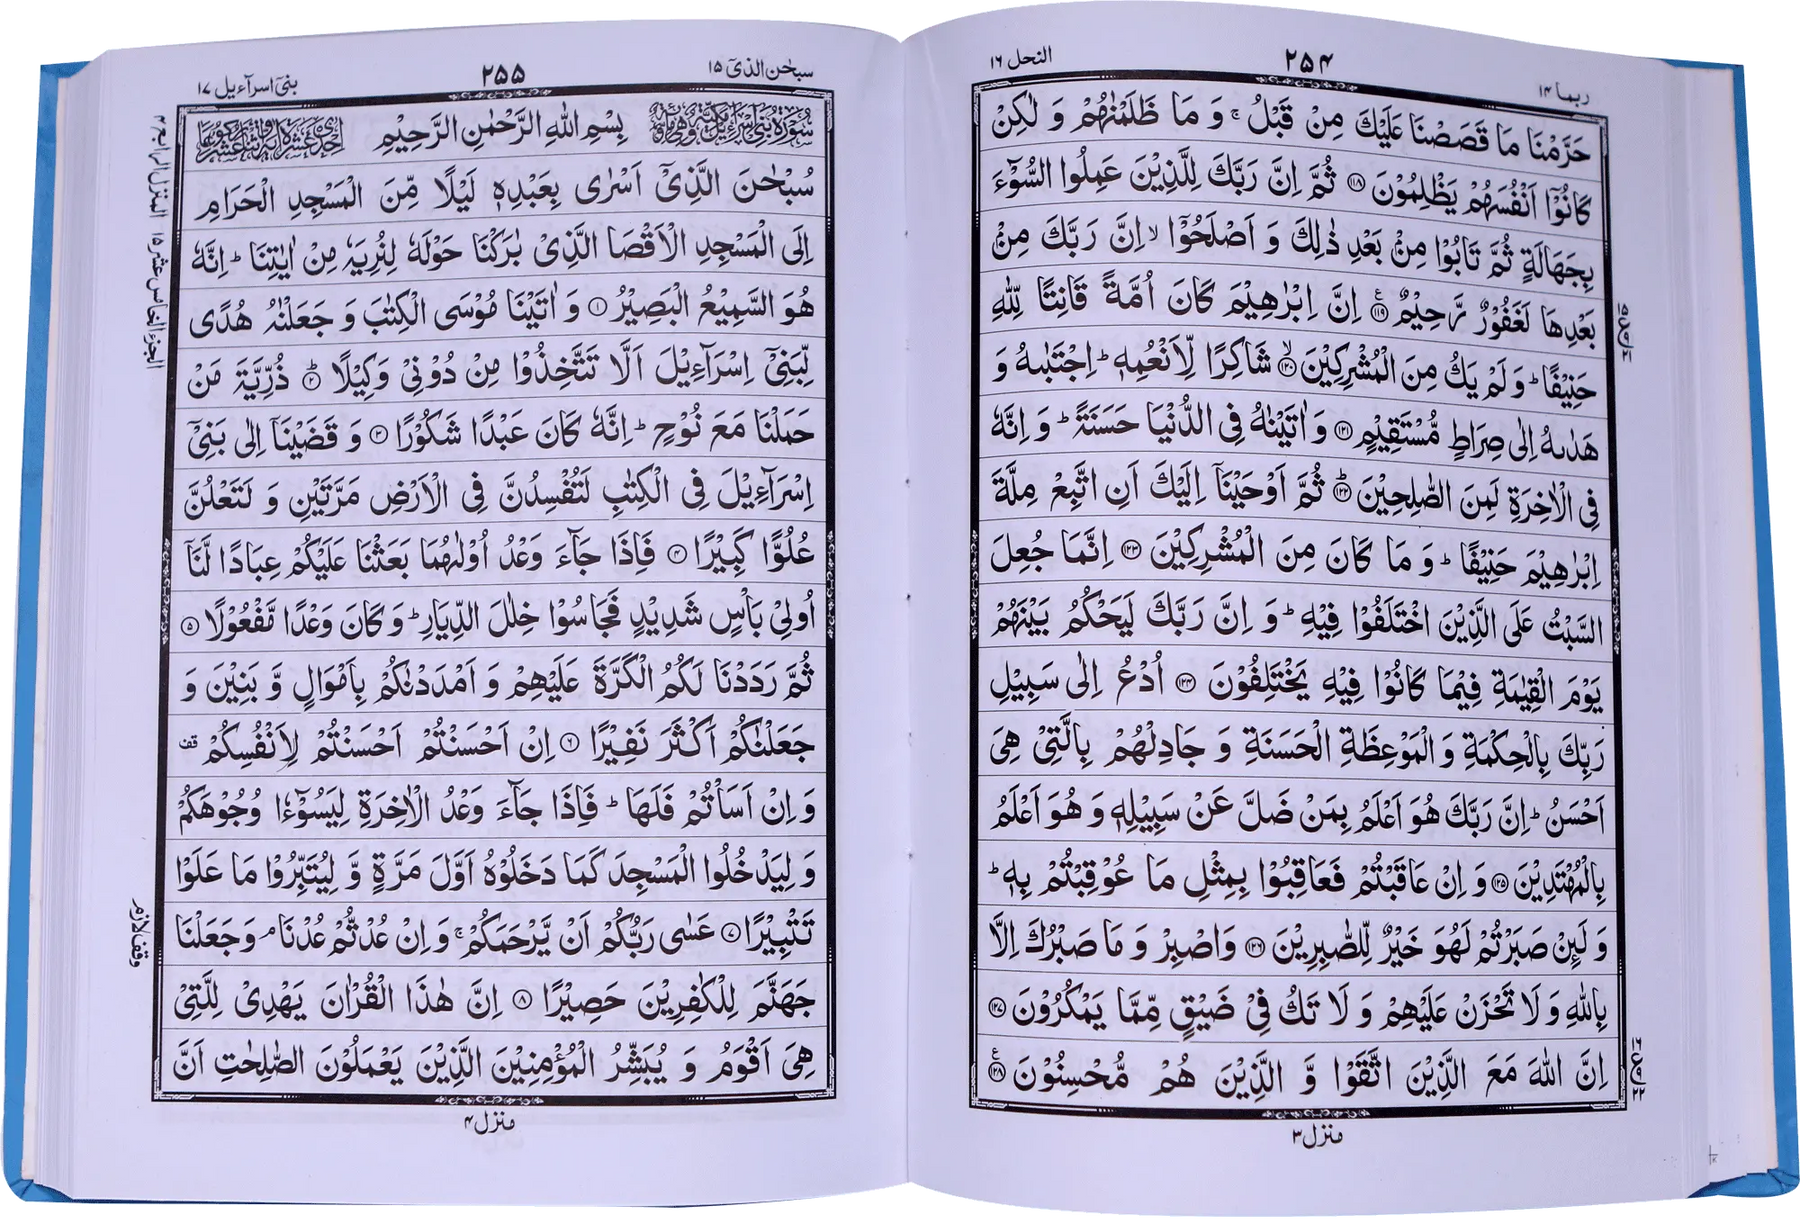 ربما ۱۴
۲۵۴
النحل ۱۶
حَرَّمْنَا مَا قَصَصْنَا عَلَيْكَ مِنْ قَبْلُ ۚ وَ مَا ظَلَمْنٰهُمْ وَ لٰكِنْ
كَانُوْۤا اَنْفُسَهُمْ يَظْلِمُوْنَ ۝۱۱۸ ثُمَّ اِنَّ رَبَّكَ لِلَّذِيْنَ عَمِلُوا السُّوْٓءَ
بِجَهَالَةٍ ثُمَّ تَابُوْا مِنْۢ بَعْدِ ذٰلِكَ وَ اَصْلَحُوْۤا ۙ اِنَّ رَبَّكَ مِنْۢ
بَعْدِهَا لَغَفُوْرٌ رَّحِيْمٌ ۝۱۱۹ اِنَّ اِبْرٰهِيْمَ كَانَ اُمَّةً قَانِتًا لِّلّٰهِ
حَنِيْفًا ؕ وَ لَمْ يَكُ مِنَ الْمُشْرِكِيْنَ ۝۱۲۰ شَاكِرًا لِّاَنْعُمِهٖ ؕ اِجْتَبٰىهُ وَ
هَدٰىهُ اِلٰى صِرَاطٍ مُّسْتَقِيْمٍ ۝۱۲۱ وَ اٰتَيْنٰهُ فِى الدُّنْيَا حَسَنَةً ؕ وَ اِنَّهٗ
فِى الْاٰخِرَةِ لَمِنَ الصّٰلِحِيْنَ ۝۱۲۲ ثُمَّ اَوْحَيْنَاۤ اِلَيْكَ اَنِ اتَّبِعْ مِلَّةَ
اِبْرٰهِيْمَ حَنِيْفًا ؕ وَ مَا كَانَ مِنَ الْمُشْرِكِيْنَ ۝۱۲۳ اِنَّمَا جُعِلَ
السَّبْتُ عَلَى الَّذِيْنَ اخْتَلَفُوْا فِيْهِ ؕ وَ اِنَّ رَبَّكَ لَيَحْكُمُ بَيْنَهُمْ
يَوْمَ الْقِيٰمَةِ فِيْمَا كَانُوْا فِيْهِ يَخْتَلِفُوْنَ ۝۱۲۴ اُدْعُ اِلٰى سَبِيْلِ
رَبِّكَ بِالْحِكْمَةِ وَ الْمَوْعِظَةِ الْحَسَنَةِ وَ جَادِلْهُمْ بِالَّتِىْ هِىَ
اَحْسَنُ ؕ اِنَّ رَبَّكَ هُوَ اَعْلَمُ بِمَنْ ضَلَّ عَنْ سَبِيْلِهٖ وَ هُوَ اَعْلَمُ
بِالْمُهْتَدِيْنَ ۝۱۲۵ وَ اِنْ عَاقَبْتُمْ فَعَاقِبُوْا بِمِثْلِ مَا عُوْقِبْتُمْ بِهٖ ؕ
وَ لَئِنْ صَبَرْتُمْ لَهُوَ خَيْرٌ لِّلصّٰبِرِيْنَ ۝۱۲۶ وَاصْبِرْ وَ مَا صَبْرُكَ اِلَّا
بِاللّٰهِ وَ لَا تَحْزَنْ عَلَيْهِمْ وَ لَا تَكُ فِىْ ضَيْقٍ مِّمَّا يَمْكُرُوْنَ ۝۱۲۷
اِنَّ اللّٰهَ مَعَ الَّذِيْنَ اتَّقَوْا وَّ الَّذِيْنَ هُمْ مُّحْسِنُوْنَ ۝۱۲۸
منزل ۳
سبحٰن الذىٓ ۱۵
۲۵۵
بنىٓ اسرآءيل ۱۷
بِسْمِ اللّٰهِ الرَّحْمٰنِ الرَّحِيْمِ
سُبْحٰنَ الَّذِىْۤ اَسْرٰى بِعَبْدِهٖ لَيْلًا مِّنَ الْمَسْجِدِ الْحَرَامِ
اِلَى الْمَسْجِدِ الْاَقْصَا الَّذِىْ بٰرَكْنَا حَوْلَهٗ لِنُرِيَهٗ مِنْ اٰيٰتِنَا ؕ اِنَّهٗ
هُوَ السَّمِيْعُ الْبَصِيْرُ ۝۱ وَ اٰتَيْنَا مُوْسَى الْكِتٰبَ وَ جَعَلْنٰهُ هُدًى
لِّبَنِىْۤ اِسْرَآءِيْلَ اَلَّا تَتَّخِذُوْا مِنْ دُوْنِىْ وَكِيْلًا ۝۲ؕ ذُرِّيَّةَ مَنْ
حَمَلْنَا مَعَ نُوْحٍ ؕ اِنَّهٗ كَانَ عَبْدًا شَكُوْرًا ۝۳ وَ قَضَيْنَاۤ اِلٰى بَنِىْۤ
اِسْرَآءِيْلَ فِى الْكِتٰبِ لَتُفْسِدُنَّ فِى الْاَرْضِ مَرَّتَيْنِ وَ لَتَعْلُنَّ
عُلُوًّا كَبِيْرًا ۝۴ فَاِذَا جَآءَ وَعْدُ اُوْلٰىهُمَا بَعَثْنَا عَلَيْكُمْ عِبَادًا لَّنَاۤ
اُولِىْ بَاْسٍ شَدِيْدٍ فَجَاسُوْا خِلٰلَ الدِّيَارِ ؕ وَ كَانَ وَعْدًا مَّفْعُوْلًا ۝۵
ثُمَّ رَدَدْنَا لَكُمُ الْكَرَّةَ عَلَيْهِمْ وَ اَمْدَدْنٰكُمْ بِاَمْوَالٍ وَّ بَنِيْنَ وَ
جَعَلْنٰكُمْ اَكْثَرَ نَفِيْرًا ۝۶ اِنْ اَحْسَنْتُمْ اَحْسَنْتُمْ لِاَنْفُسِكُمْ قف
وَ اِنْ اَسَاْتُمْ فَلَهَا ؕ فَاِذَا جَآءَ وَعْدُ الْاٰخِرَةِ لِيَسُوْٓءٗا وُجُوْهَكُمْ
وَ لِيَدْخُلُوا الْمَسْجِدَ كَمَا دَخَلُوْهُ اَوَّلَ مَرَّةٍ وَّ لِيُتَبِّرُوْا مَا عَلَوْا
تَتْبِيْرًا ۝۷ عَسٰى رَبُّكُمْ اَنْ يَّرْحَمَكُمْ ۚ وَ اِنْ عُدْتُّمْ عُدْنَا ۘ وَ جَعَلْنَا
جَهَنَّمَ لِلْكٰفِرِيْنَ حَصِيْرًا ۝۸ اِنَّ هٰذَا الْقُرْاٰنَ يَهْدِىْ لِلَّتِىْ
هِىَ اَقْوَمُ وَ يُبَشِّرُ الْمُؤْمِنِيْنَ الَّذِيْنَ يَعْمَلُوْنَ الصّٰلِحٰتِ اَنَّ
منزل ۴
المنزل الرابع ۴
الجزء الخامس عشر ۱۵
وقف لازم